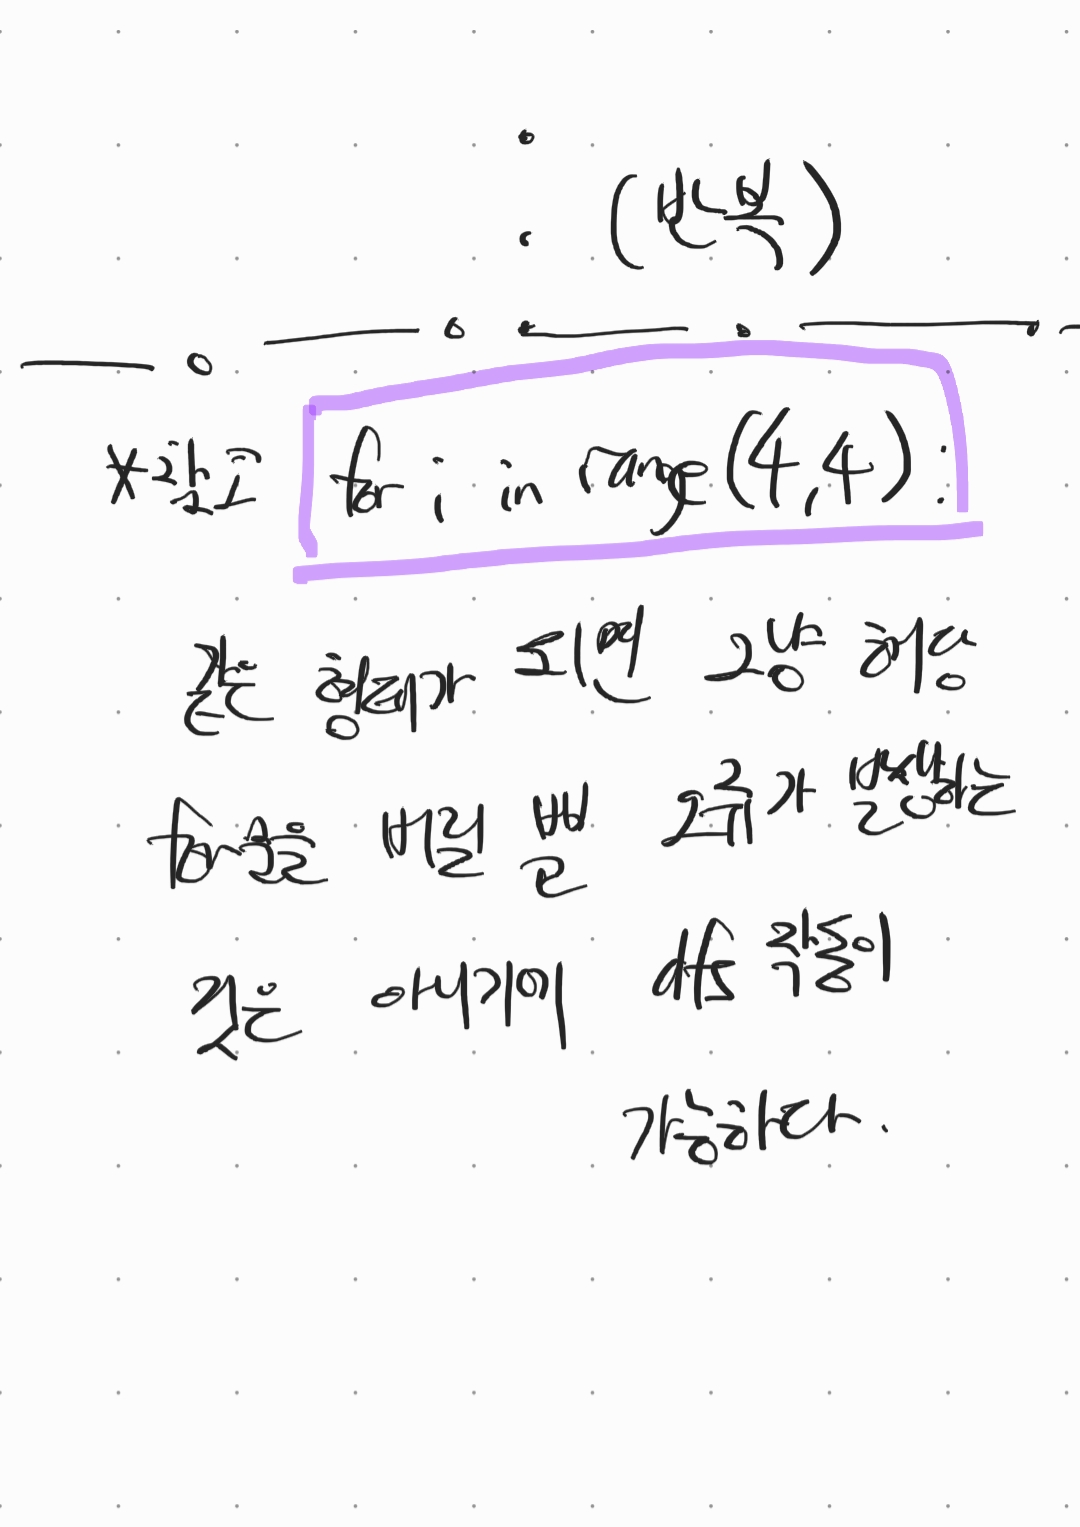 (반복)
*참고 for i in range(4,4):
같은 형태가 되면 그냥 해당
for문을 버릴 뿐 오류가 발생하는
것은 아니기에 dfs 작동이
가능하다.